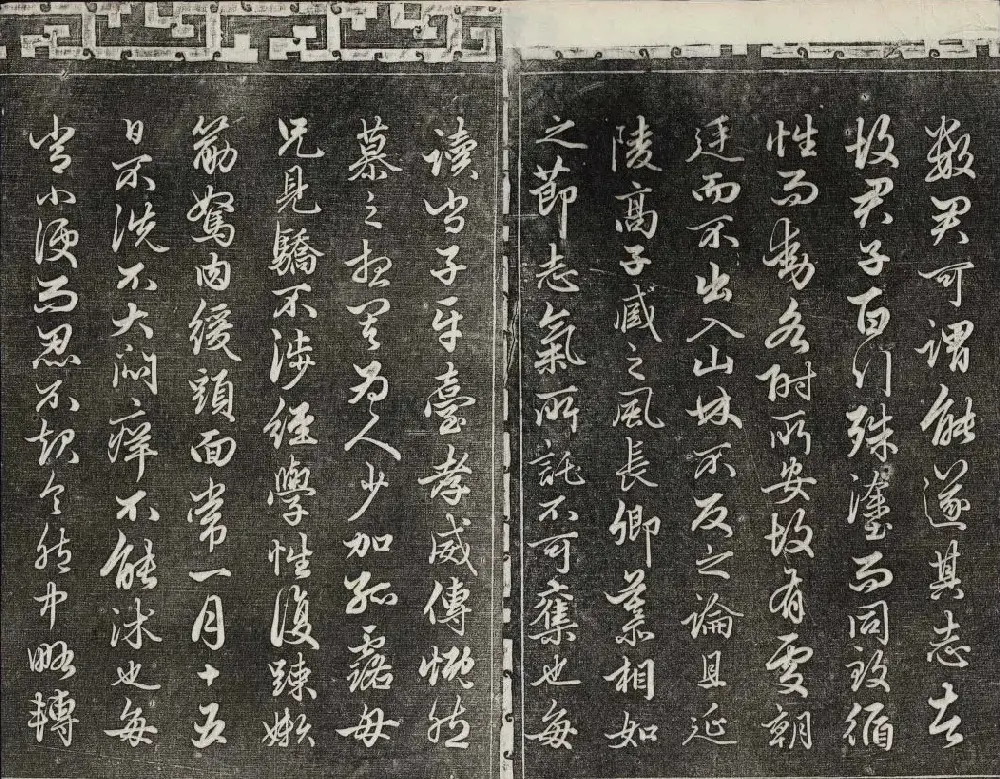 數君可謂能遂其志者
故君子百行殊塗而同致循
性而動各附所安故有處朝
廷而不出入山林不反之論且延
陵高子臧之風長卿慕相如
之節志氣所託不可奪也每
讀尚子平臺孝威傳慨然
慕之想其為人少加孤露母
兄見驕不涉經學性復踈嬾
筋駑肉緩頭面常一月十五
日不洗不大悶癢不能沐也每
常小便而忍不起令胞中略轉